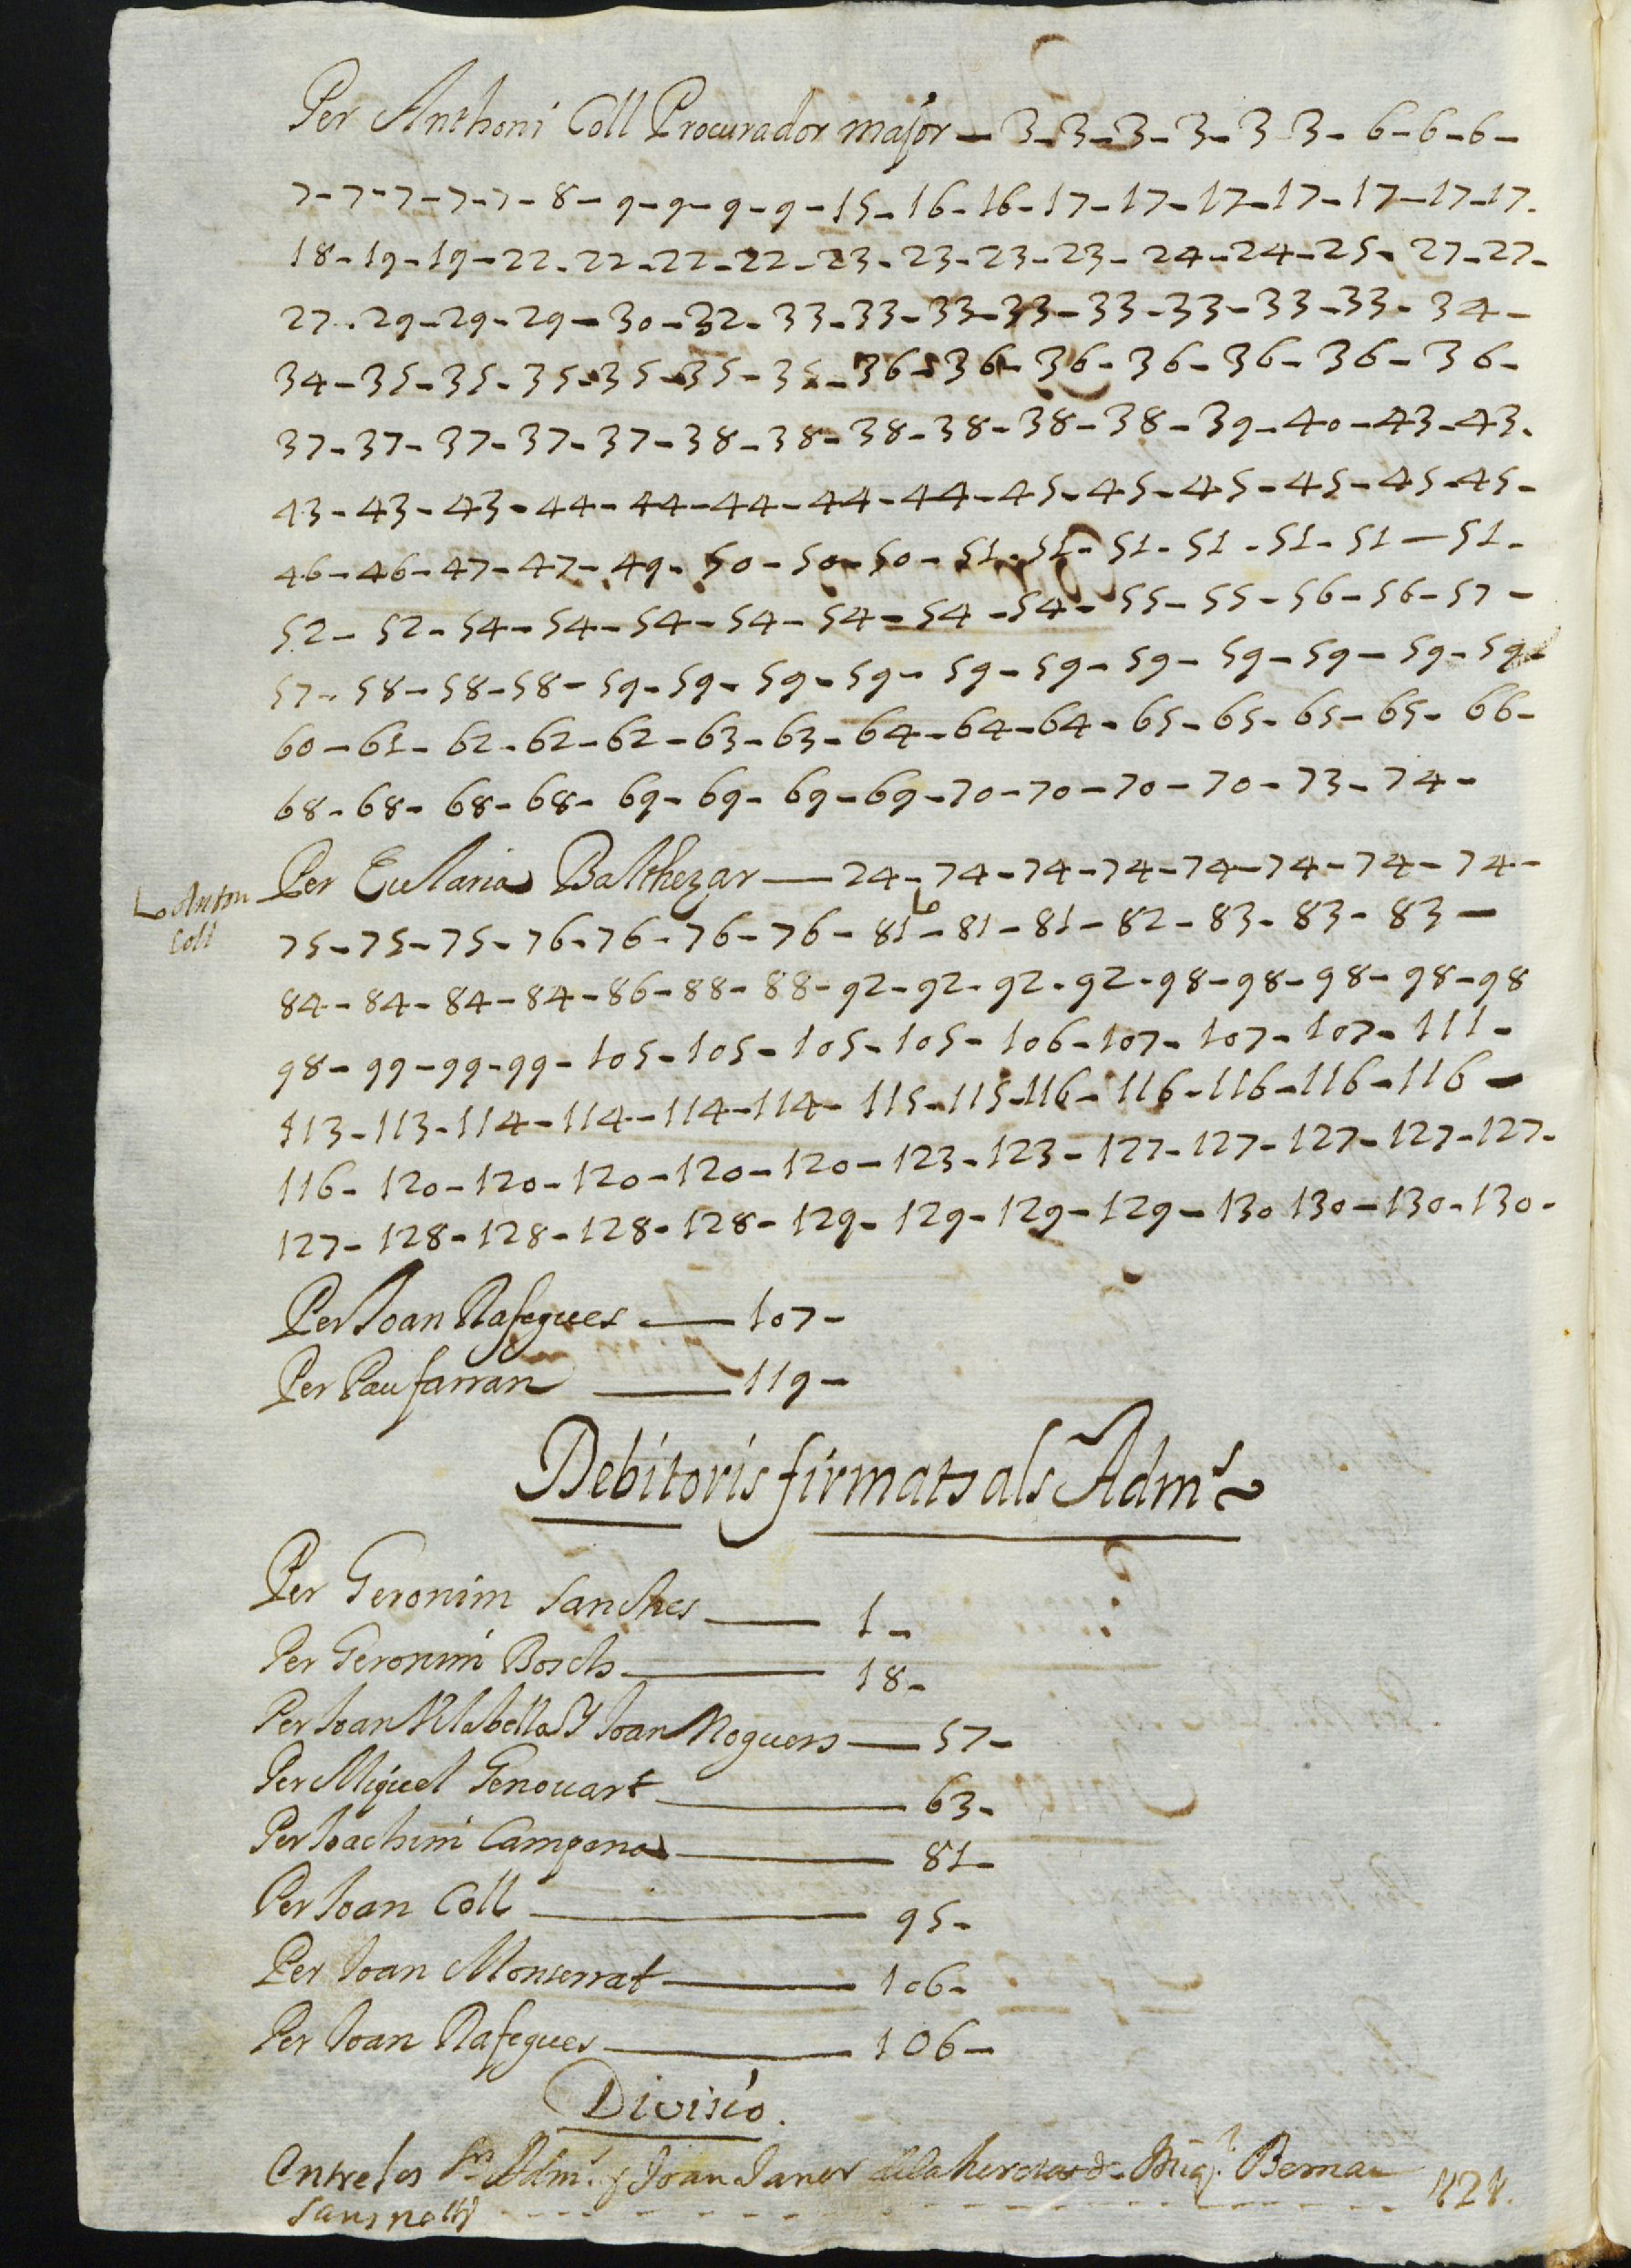 Per Anthoni Coll Procurador major — 3-3-3-3-3 3-6-6-6-
7-7-7-7-7-8-9-9-9-9-15-16-16-17-17-17-17-17-17-17.
18-19-19-22-22-22-22-23-23-23-23-24-24-25-27-27-
27-29-29-29-30-32-33-33-33-33-33-33-33-33-34-
34-35-35-35-35-35-35-36-36-36-36-36-36-36-
37-37-37-37-37-38-38-38-38-38-38-39-40-43-43.
43-43-43-44-44-44-44-44-45-45-45-45-45-45-
46-46-47-47-49-50-50-50-51-51-51-51-51-51-51-
52-52-54-54-54-54-54-54-54-55-55-56-56-57-
57-58-58-58-59-59-59-59-59-59-59-59-59-59-59-
60-61-62-62-62-63-63-64-64-64-65-65-65-65-66-
68-68-68-68-69-69-69-69-70-70-70-70-73-74-
Per Eularia Balthezar — 24-74-74-74-74-74-74-74-
Anton
Coll
75-75-75-76-76-76-76-81-81-81-82-83-83-83-
84-84-84-84-86-88-88-92-92-92-92-98-98-98-98-98
98-99-99-99-105-105-105-105-106-107-107-107-111-
113-113-114-114-114-114-115-115-116-116-116-116-116-
116-120-120-120-120-120-123-123-127-127-127-127-127-
127-128-128-128-128-129-129-129-129-130 130-130-130-
Per Joan Rafegues — 107-
Per Pau farran — 119-
Debitoris firmats als Adm.s
Per Geronim Sanches — 1-
Per Geronim Bosch — 18-
Per Joan Y Joan Noguers — 57-
Per Miquel Genouart — 63-
Per Joachim Campana — 81-
Per Joan Coll — 95-
Per Joan Monserrat — 106-
Per Joan Rafegues — 106-
Divisió.
Entre los Srs Adm.s y Joan Janer de la heretat de Miq.l Bernau